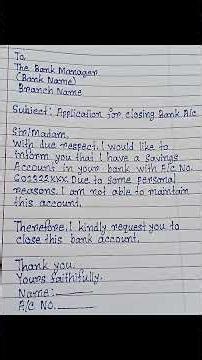 To,
The Bank Manager
(Bank Name)
Branch Name
Subject: Application for closing Bank A/c
Sir/Madam,
With due respect, I would like to
inform you that I have a savings
Account in your bank with A/c No.
602322XXX. Due to some personal
reasons. I am not able to maintain
this account.
Therefore, I kindly request you to
close this bank account.
Thank you.
Yours faithfully.
Name:
A/c No.